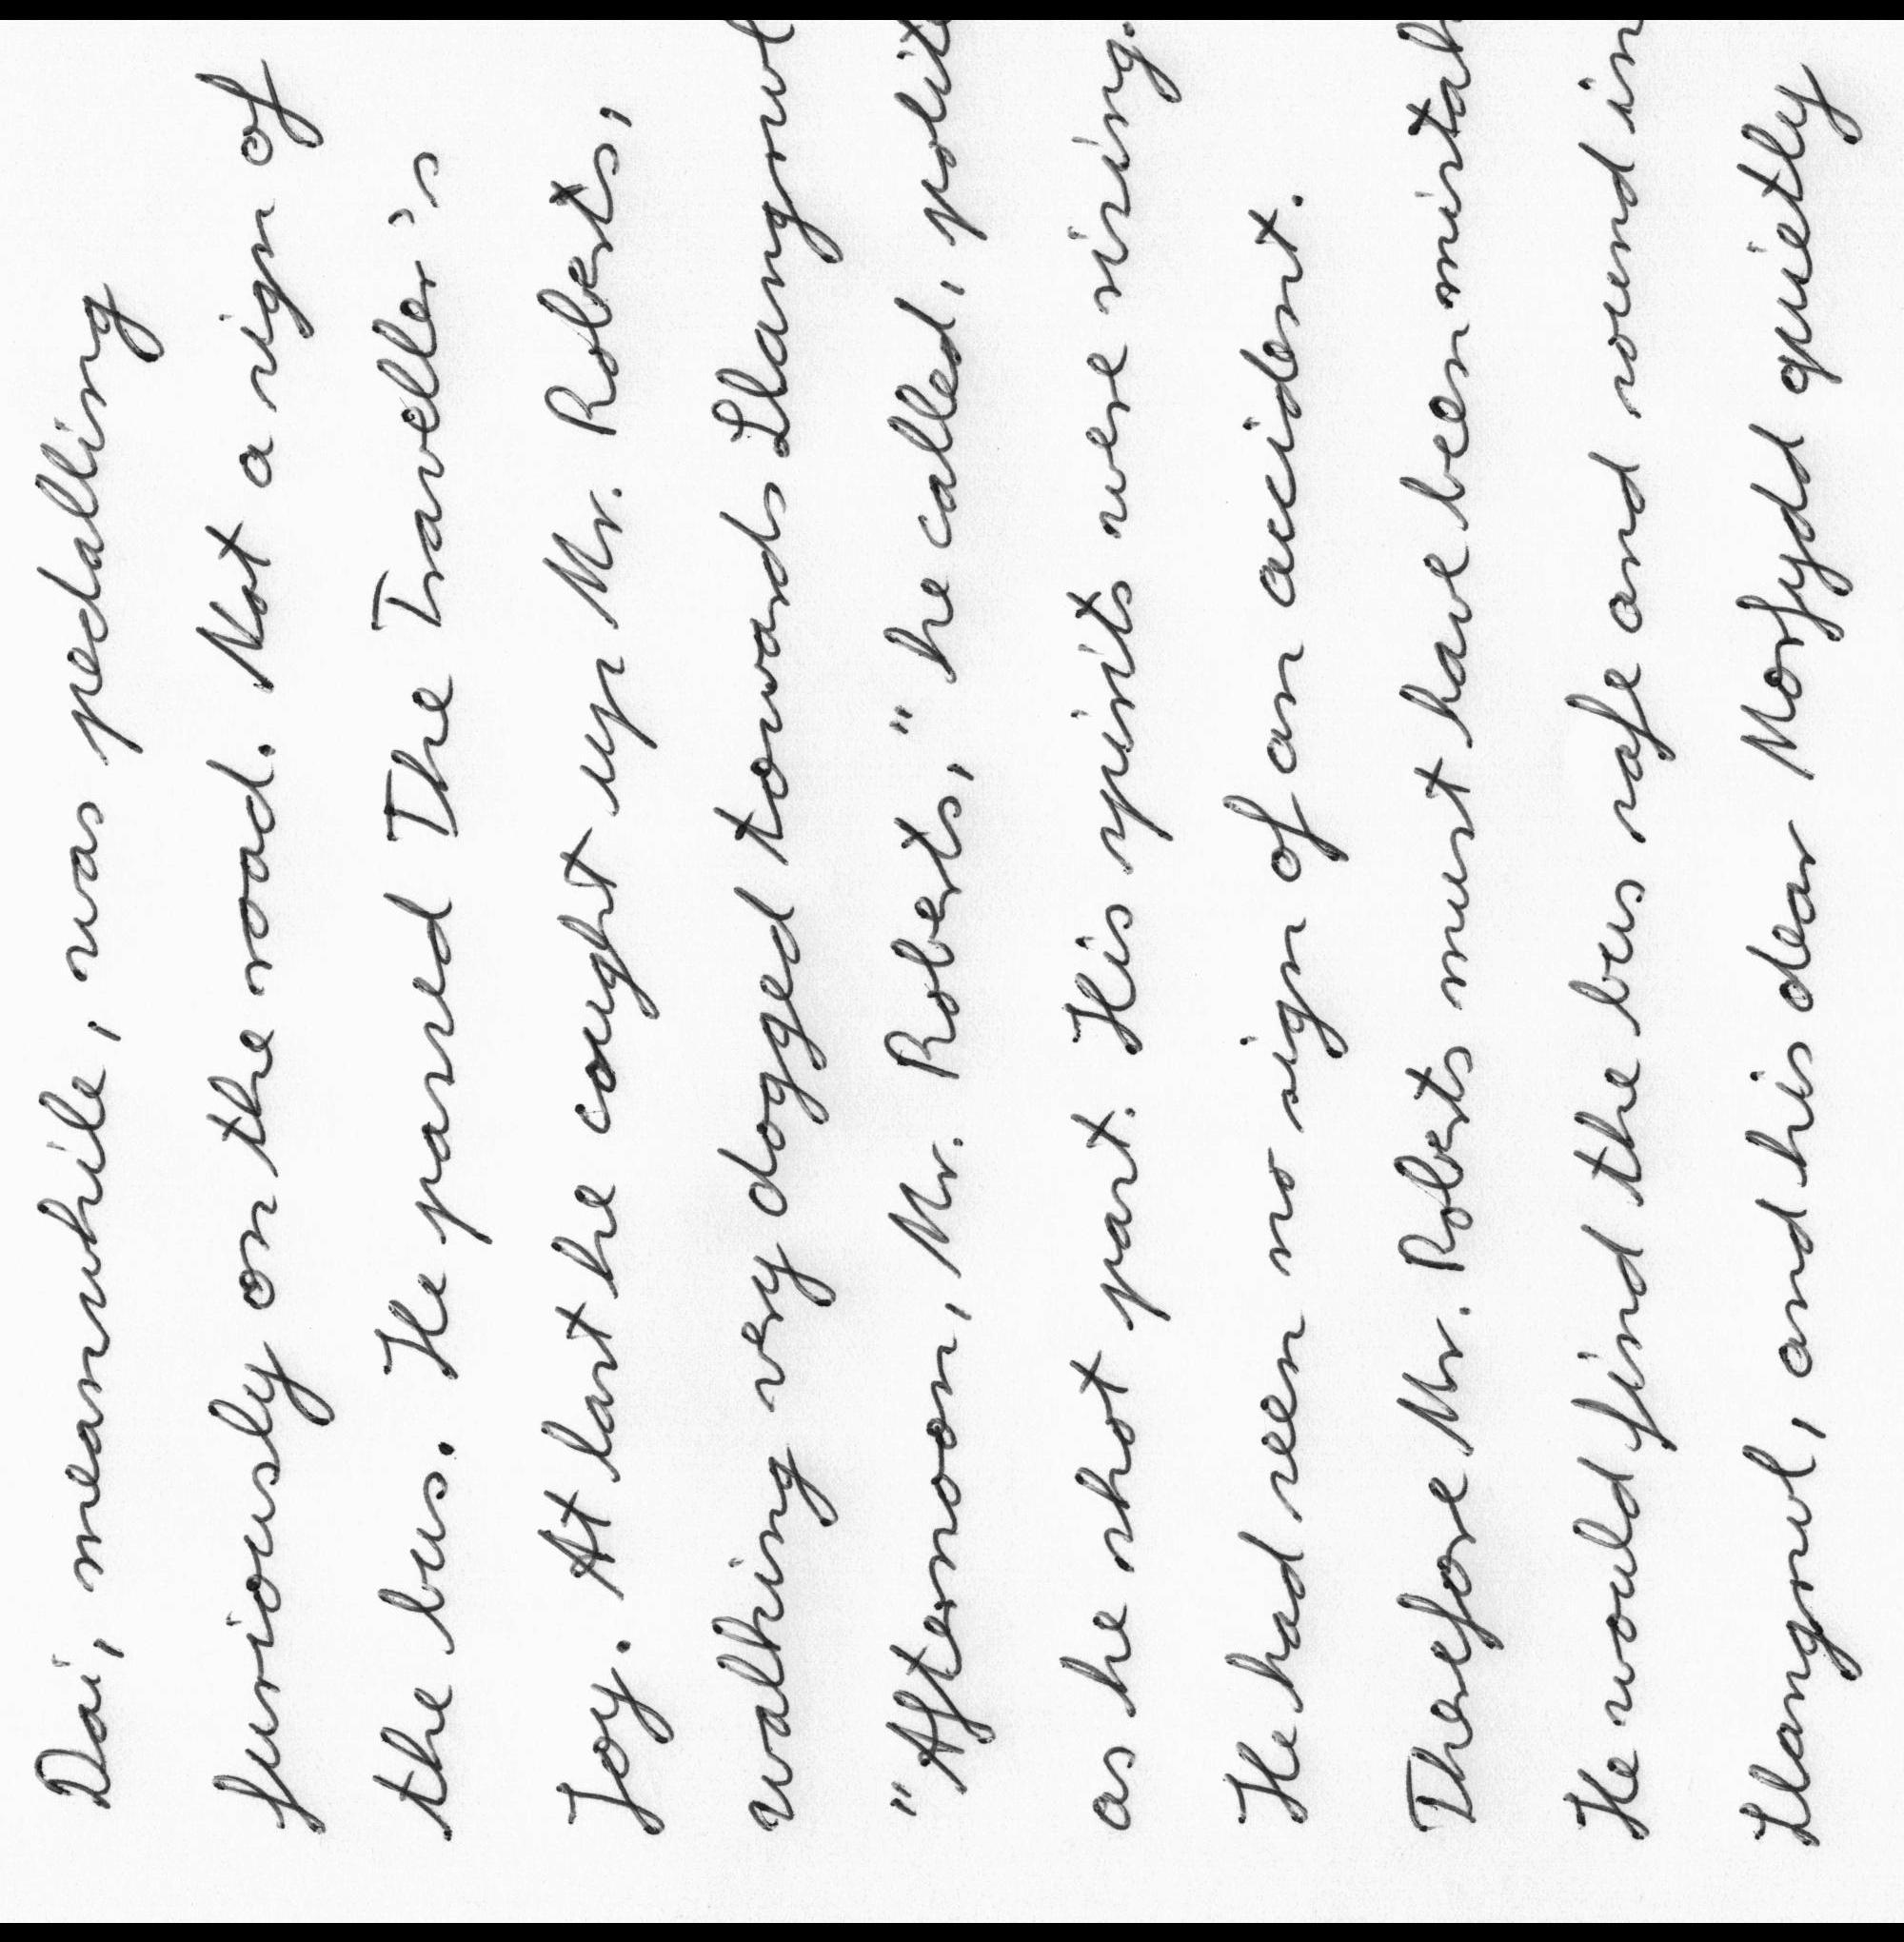 Dai, meanwhile, was pedalling
furiously on the road. Not a sign of
the bus. He passed The Traveller's
Joy. At last he caught up Mr. Roberts,
walking very dogged towards Llangrwl
"Afternoon, Mr. Roberts," he called, polite
as he shot past. His spirits were rising.
He had seen no sign of an accident.
Therefore Mr. Roberts must have been mistak
He would find the bus safe and sound in
Llangrwl, and his dear Morfydd quietly